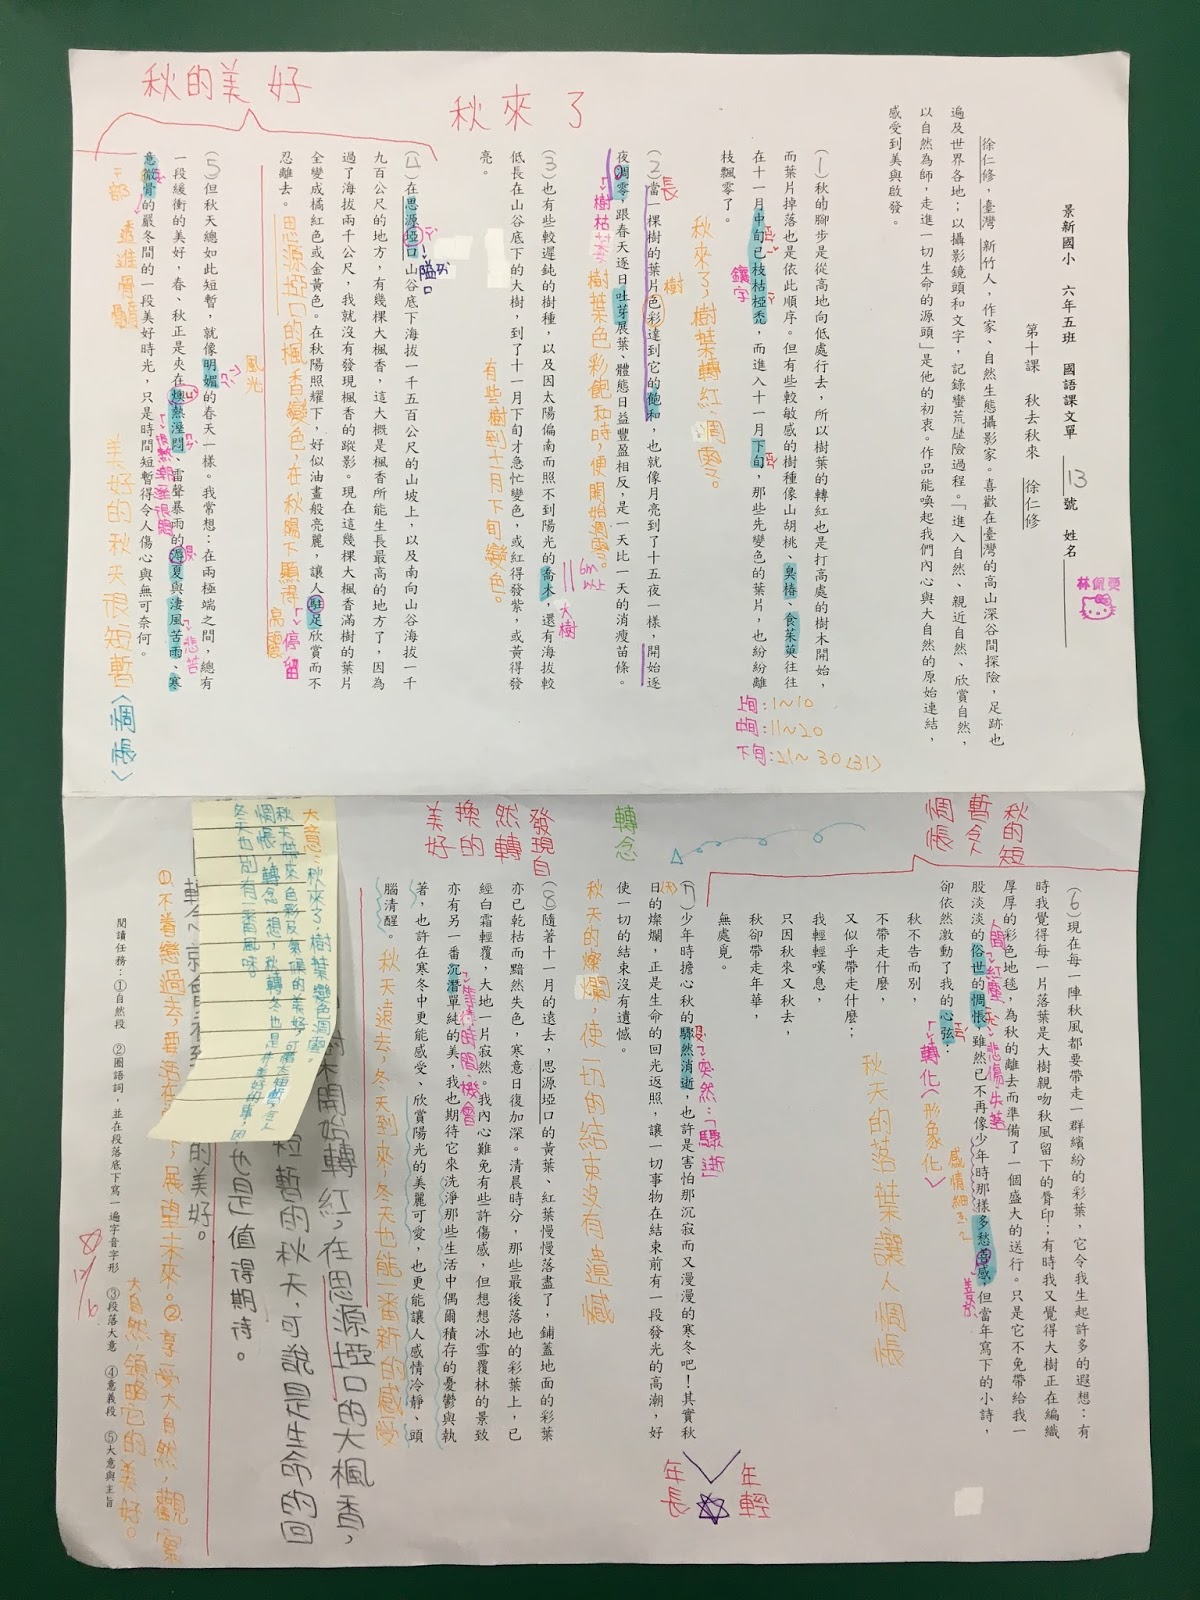 景新國小　六年五班　國語課文單　13號　姓名
第十課　秋去秋來　徐仁修
徐仁修，臺灣 新竹人，作家、自然生態攝影家。喜歡在臺灣的高山深谷間探險，足跡也
遍及世界各地；以攝影鏡頭和文字，記錄蠻荒歷險過程。「進入自然、親近自然、欣賞自然，
以自然為師，走進一切生命的源頭」是他的初衷。作品能喚起我們內心與大自然的原始連結，
感受到美與啟發。
秋來了
(1)秋的腳步是從高地向低處行去，所以樹葉的轉紅也是打高處的樹木開始，
而葉片掉落也是依此順序。但有些較敏感的樹種像山胡桃、臭椿、食茱萸往往
在十一月中旬已枝枯椏禿，而進入十一月下旬，那些先變色的葉片，也紛紛離
枝飄零了。
上旬：1~10
中旬：11~20
下旬：21~30(31)
秋來了，樹葉轉紅、凋零。
(2)當一棵樹的葉片色彩達到它的飽和，也就像月亮到了十五夜一樣，開始逐
夜凋零，跟春天逐日吐芽展葉、體態日益豐盈相反，是一天比一天的消瘦苗條。
樹葉色彩飽和時，便開始凋零。
(3)也有些較遲鈍的樹種，以及因太陽偏南而照不到陽光的喬木，還有海拔較
低長在山谷底下的大樹，到了十一月下旬才急忙變色，或紅得發紫，或黃得發
亮。
大樹
有些樹到十一月下旬變色。
秋的美好
(4)在思源埡口山谷底下海拔一千五百公尺的山坡上，以及南向山谷海拔一千
九百公尺的地方，有幾棵大楓香，這大概是楓香所能生長最高的地方了，因為
過了海拔兩千公尺，我就沒有發現楓香的蹤影。現在這幾棵大楓香滿樹的葉片
全變成橘紅色或金黃色。在秋陽照耀下，好似油畫般亮麗，讓人駐足欣賞而不
忍離去。
停留
思源埡口的楓香變色，在秋陽下顯得亮麗。
風光
(5)但秋天總如此短暫，就像明媚的春天一樣。我常想：在兩極端之間，總有
一段緩衝的美好，春、秋正是夾在燠熱溼悶、雷聲暴雨的溽夏與淒風苦雨、寒
意徹骨的嚴冬間的一段美好時光，只是時間短暫得令人傷心與無可奈何。
悲苦
美好的秋天很短暫〈惆悵〉
秋的短
暫令人
惆悵
(6)現在每一陣秋風都要帶走一群繽紛的彩葉，它令我生起許多的遐想：有
時我覺得每一片落葉是大樹親吻秋風留下的脣印；有時我又覺得大樹正在編織
厚厚的彩色地毯，為秋的離去而準備了一個盛大的送行。只是它不免帶給我一
股淡淡的俗世的惆悵，雖然已不再像少年時那樣多愁善感，但當年寫下的小詩，
卻依然激動了我的心弦：
秋不告而別，
不帶走什麼，
又似乎帶走什麼；
我輕輕嘆息，
只因秋來又秋去，
秋卻帶走年華，
無處覓。
「轉化」〈形象化〉
秋天的落葉讓人惆悵
轉念
(7)少年時擔心秋的驟然消逝，也許是害怕那沉寂而又漫漫的寒冬吧！其實秋
日的燦爛，正是生命的回光返照，讓一切事物在結束前有一段發光的高潮，好
使一切的結束沒有遺憾。
年輕
年長
秋天的燦爛，使一切的結束沒有遺憾
發現自
然轉
換的
美好
(8)隨著十一月的遠去，思源埡口的黃葉、紅葉慢慢落盡了，鋪蓋地面的彩葉
亦已乾枯而黯然失色，寒意日復加深。清晨時分，那些最後落地的彩葉上，已
經白霜輕覆，大地一片寂然。我內心難免有些許傷感，但想想冰雪覆林的景致
亦有另一番沉潛單純的美，我也期待它來洗淨那些生活中偶爾積存的憂鬱與執
著，也許在寒冬中更能感受、欣賞陽光的美麗可愛，也更能讓人感情冷靜、頭
腦清醒。
秋天遠去，冬天到來，冬天也能一番新的感受
大意：秋來了，樹葉變色凋零。
冬天也別有一番風味。
樹木開始轉紅，在思源埡口的大楓香，
短暫的秋天，可說是生命的回
也是值得期待。
的美好。
①不眷戀過去，要活在
，展望未來。②享受大自然，觀察
大自然，領略它的美好。
閱讀任務：①自然段　②圈語詞，並在段落底下寫一遍字音字形　③段落大意　④意義段　⑤大意與主旨
12/6